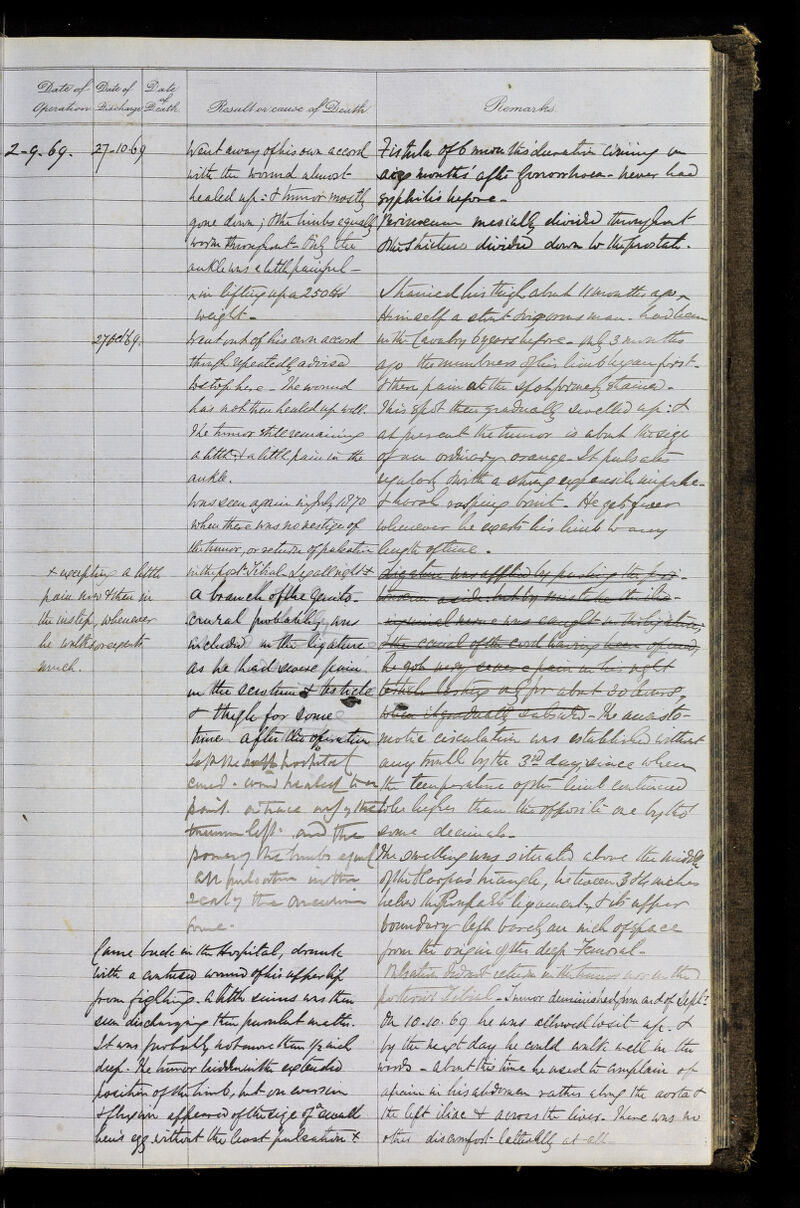 Date of Operation
Date of Discharge
Date of Death
Result or cause of Death
Remarks
2-9.69.
27-10.69
Went away of his own accord
with the wound almost
healed up: & tumor mostly
gone down; & the limbs equally
warm throughout - Only the
ankle was a little painful -
in lifting up a 250 lbs
weight -
27 Oct 69.
Went out of his own accord
though repeatedly advised
to stop here - The wound
has not then healed up well.
The tumor still remaining
a little, & a little pain in the
ankle.
Was seen again in July 1870
when there was no vestige of
the tumor, or return of pulsation
in the post: Tibial - Leg all right &
+ excepting a little
pain now & then in
the instep, whenever
he walks or exerts
much.
A branch of the genito-
crural probably was
included in the ligature
as he had severe pain
in the scrotum & testicle
& thigh for some
time after the operation
Left the hospital
cured - wound healed to a
point. a trace only of the
tumour left. and the
power of the limbs equal
No pulsation in the
sac of the aneurism
Came back in the Hospital, drunk
with a contused wound of his upper lip
from fighting. A little sinus was then
seen discharging thin purulent matter.
It was probably not more than ½ inch
deep. The tumor hidden in the extended
position of the limb, but on eversion
& flexion appeared of the size of a small
hen's egg without the least pulsation &
Fistula of 6 months duration coming on
six months after gonorrhoea - never had
syphilis before -
Perinaeum mesially divided throughout
& the stricture divided down to the prostate.
Strained his thigh about 11 months ago -
Himself a stout vigorous man - had been
in the Cavalry 6 years before - only 3 months
ago the numbness of his limb began first -
& then pain at the spot formerly strained -
This spot then gradually swelled up: &
at present the tumor is about the size
of an ordinary orange. It pulsates
regularly with a strong expansile impulse -
& harsh rasping bruit - He gets fever
whenever he exerts his limb to any
length of time -
Ligature was applied by pushing the peri-
toneum aside but by mistake the ilio-
inguinal nerve was caught in the ligature,
& the canal of the cord having been opened,
he got very severe pain in his right
testicle lasting only for about 20 hours,
when it gradually subsided - The anasto-
motic circulation was established without
any trouble by the 3rd day since when
the temperature of the limb continued
to be higher than the opposite one by but
some decimals -
The swelling was situated above the middle
of the Scarpa's triangle, between 3 & 4 inches
below the Poupart's ligament, & its upper
boundary left barely an inch of space
from the origin of the deep Femoral -
Pulsation did not return in the tumor nor in the
posterior Tibial - Tumor diminished from end of Septr.
On 10.10.69 he was allowed to sit up - &
by the next day he could walk well in the
wards - about this time he used to complain of
a pain in his abdomen rather along the aorta &
the left iliac & across the liver. There was no
other discomfort latterly at all